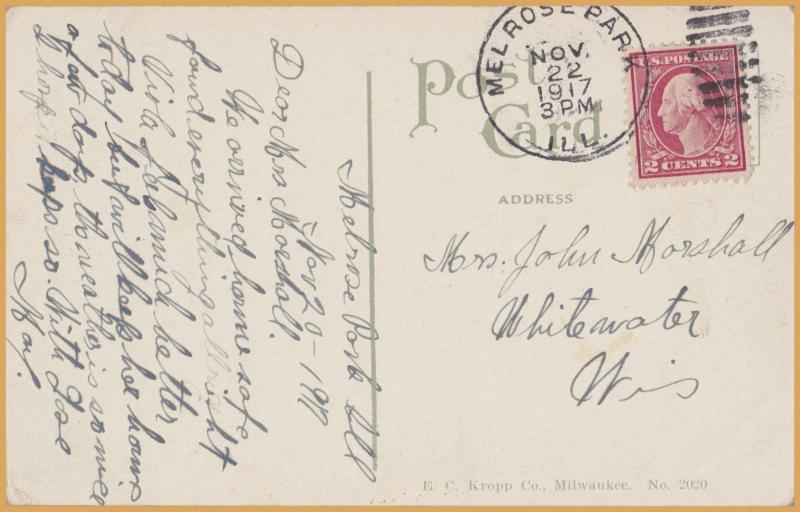 Melrose Park Ill
Nov 20 - 1917
Dear Mrs Marshall.
We arrived home safe
found everything allright
Viola is much better
today but will keep her home
a few days the weather is so nice
I hope it keeps so. With Love
May.
Post
Card
MELROSE PARK
NOV.
22
1917
3 PM
ILL.
U.S. POSTAGE
2 CENTS 2
ADDRESS
Mrs. John Marshall
Whitewater
Wis
E. C. Kropp Co., Milwaukee. No. 2020